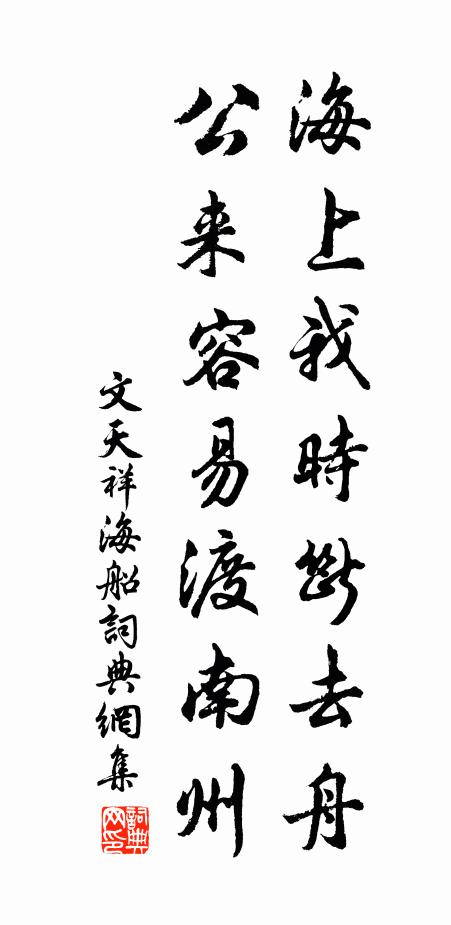 海上我時斷去舟
公来容易渡南州
文天祥海船詞典網集
詞典网印